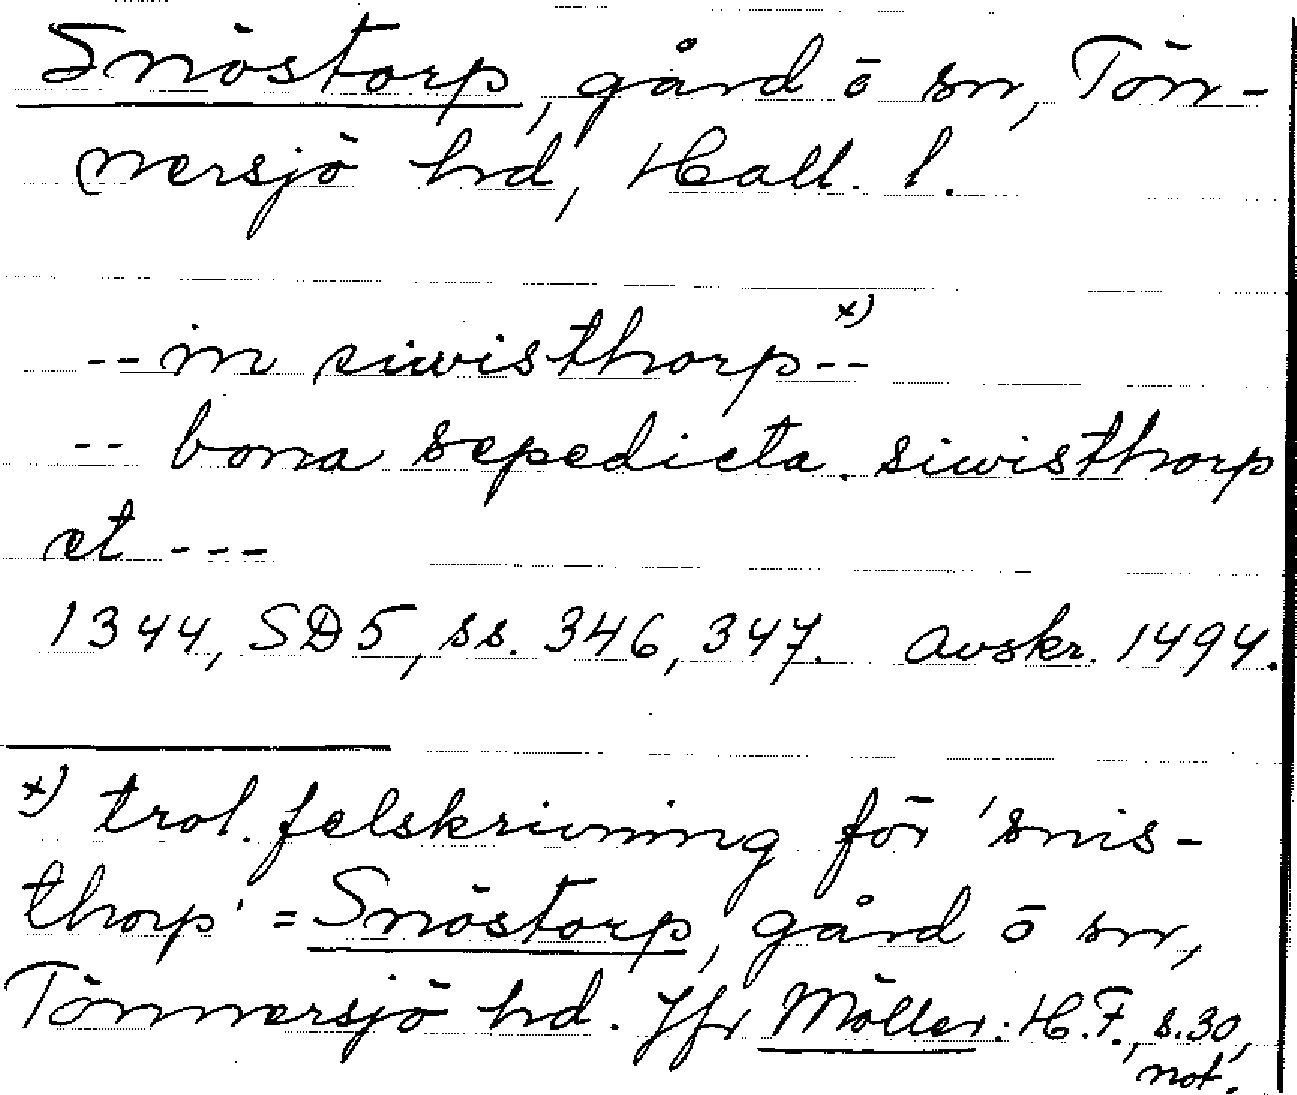 Snöstorp, gård o sn, Tön-
nersjö hd, Hall. l.
-- in siwisthorp x) --
-- bona sepedicta siwisthorp
et ---
1344, SD5, ss. 346, 347. Avskr. 1494.
x) trol. felskrivning för 'snis-
thorp' = Snöstorp, gård o sn,
Tönnersjö hd. Jfr Möller: H.F., s.30,
not.